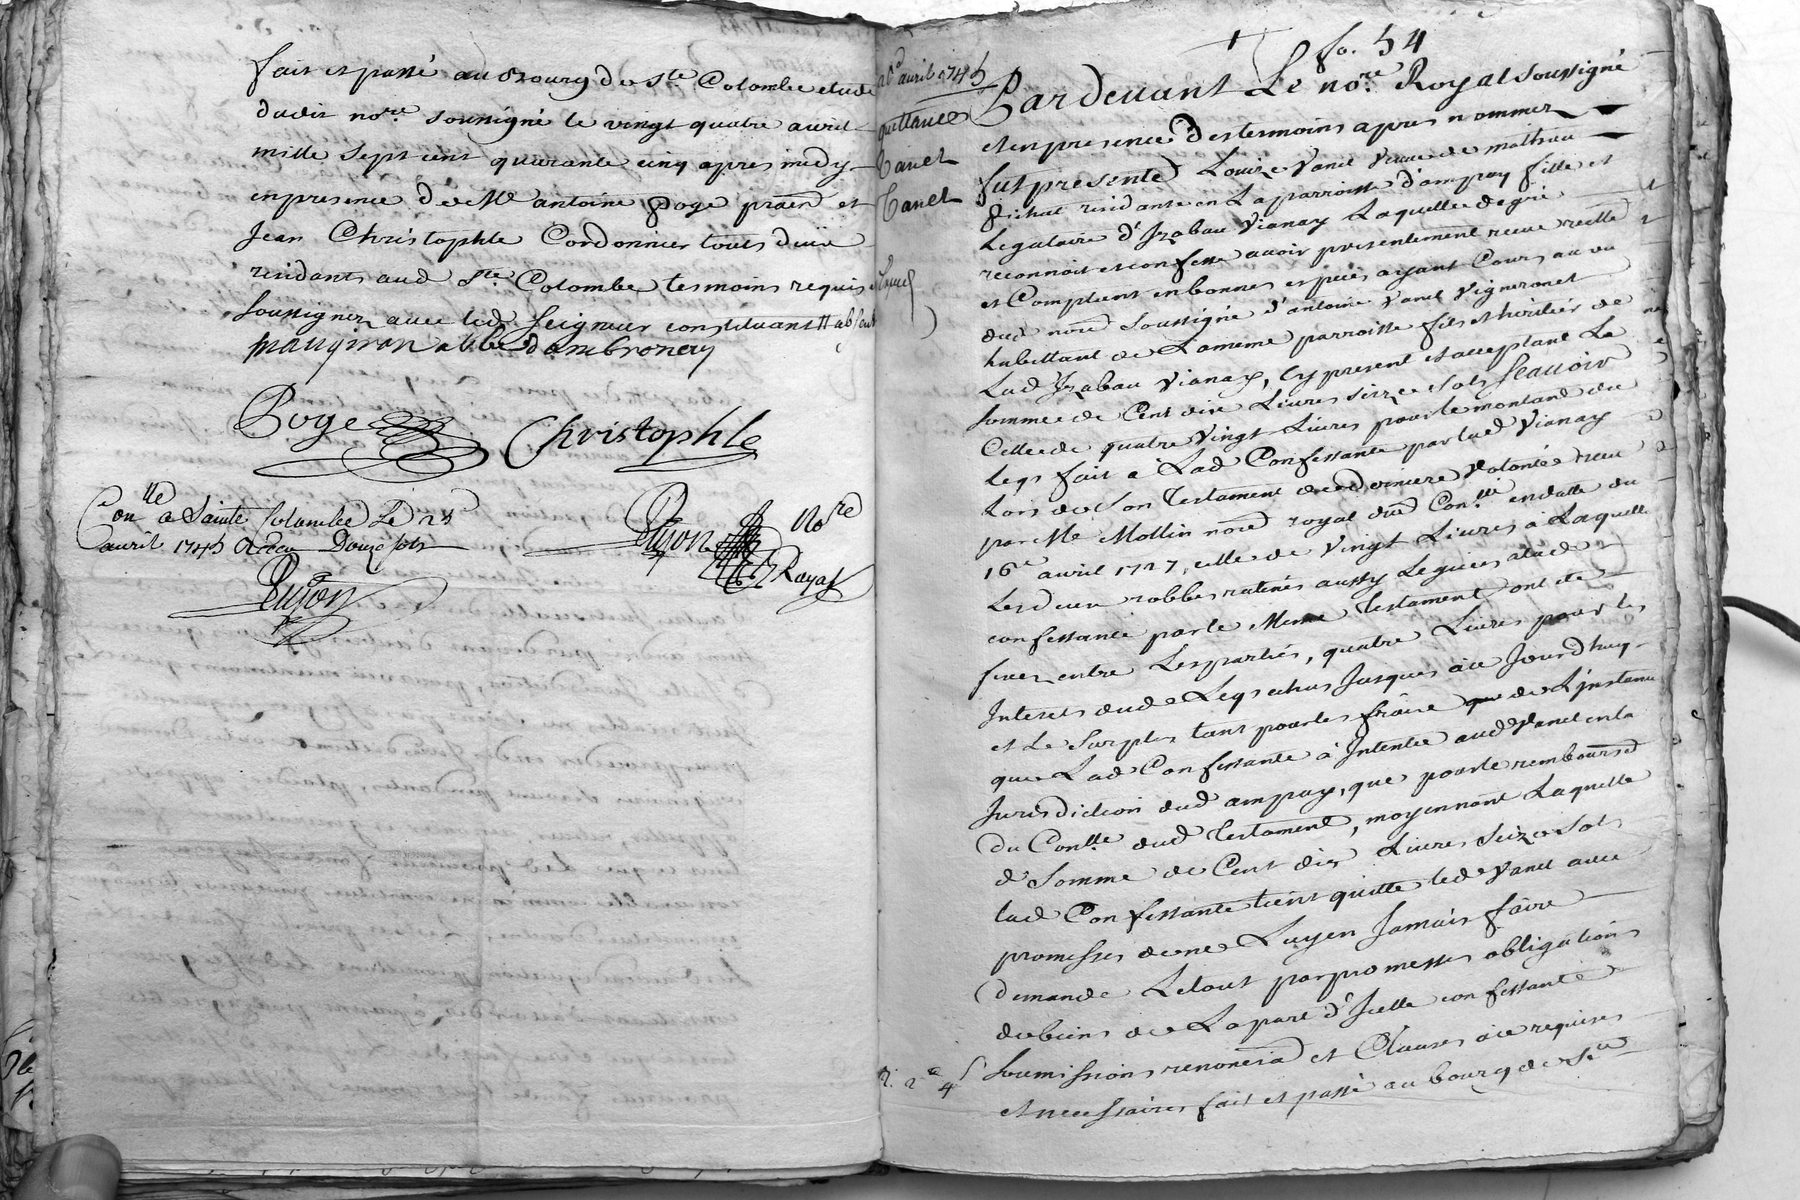 fait et passé au Bourg de Ste Colombe etude
dudit nore soussigné le vingt quatre avril
mille sept cent quarante cinq apres midy
en presence de Me antoine Poge praen et
Jean Christophle Cordonnier touts deux
residants aud Ste Colombe tesmoins requis et
soussignez avec led Seigneur constituant
maugiron abbé dambronay
Poge Christophle
Conlle a Sainte Colombe Le 25
avril 1745 Recu Douze sols
Pujon
Pujon Nore
Royal
fo. 54
26e avril 1745
quittance
Vanel
Vanel
Pardevant Le nore Royal soussigné
et en presence des tesmoins apres nommez
fut presente Louize Vanel veuve de mathieu
residante en La parroisse d'ampuy fille et
Legataire d'Izabau Vianay Laquelle de gré
reconnoit et confesse avoir presentement receu reelle
et Comptent en bonnes especes ayant Cours au vu
dud nore soussigné d'antoine Vanel Vigneron et
habittant de La meme parroisse fils et heritier de
Lad Izabau Vianay, Cy present et acceptant La
somme de Cent dix Livres seize sols Scavoir
Celle de quatre Vingt Livres pour le montant du
Legs fait a Lad Confessante par lad Vianay
Lors de son Testament de derniere Volonté receu
par Me Mollin nore royal dud Conlle en datte du
16e avril 1727, celle de Vingt Livres à Laquelle
Les deux robbes ratines aussy Leguées a lad
confessante par le Meme Testament ont été
fixez entre Les parties, quatre Livres pour les
Interets dud Legs echus Jusques à ce Jourdhuy
et Le Surplus tant pour les fraix de L'instance
que Lad Confessante à Intentée aud Vanel en la
Jurisdiction dud ampuy, que pour le remboursed
du Conlle dud Testament, moyennant Laquelle
d Somme de Cent dix Livres Seize Sols
lad Confessante tient quitte led Vanel avec
promesses de ne Luy en Jamais faire
demande Le tout par promesses obligations
de biens de La part d'Icelle confessante
soumissions renonciaõ et Clauses à ce requises
et necessaires, fait et passé au bourg de Ste
R. 2 4